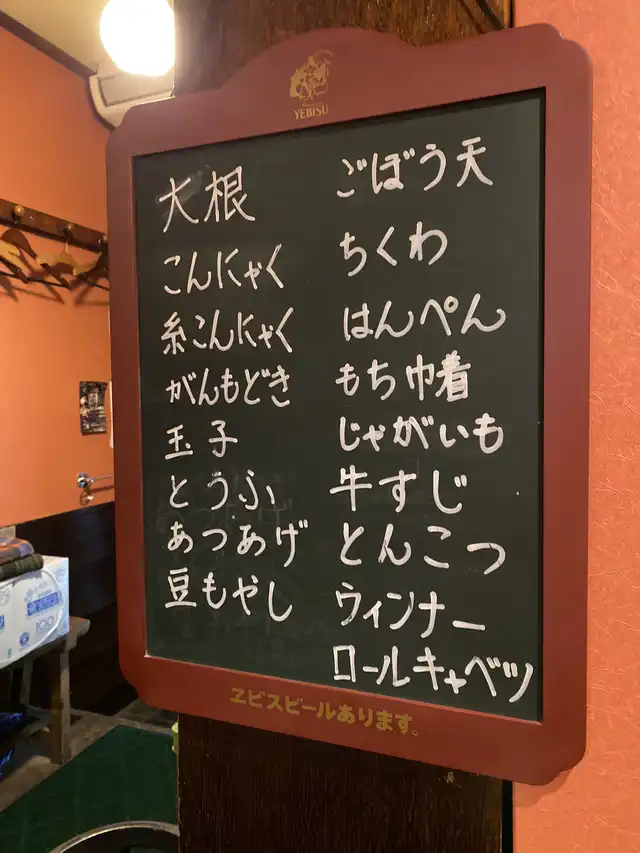 YEBISU
大根
こんにゃく
糸こんにゃく
がんもどき
玉子
とうふ
あつあげ
豆もやし
ごぼう天
ちくわ
はんぺん
もち巾着
じゃがいも
牛すじ
とんこつ
ウィンナー
ロールキャベツ
ヱビスビールあります。